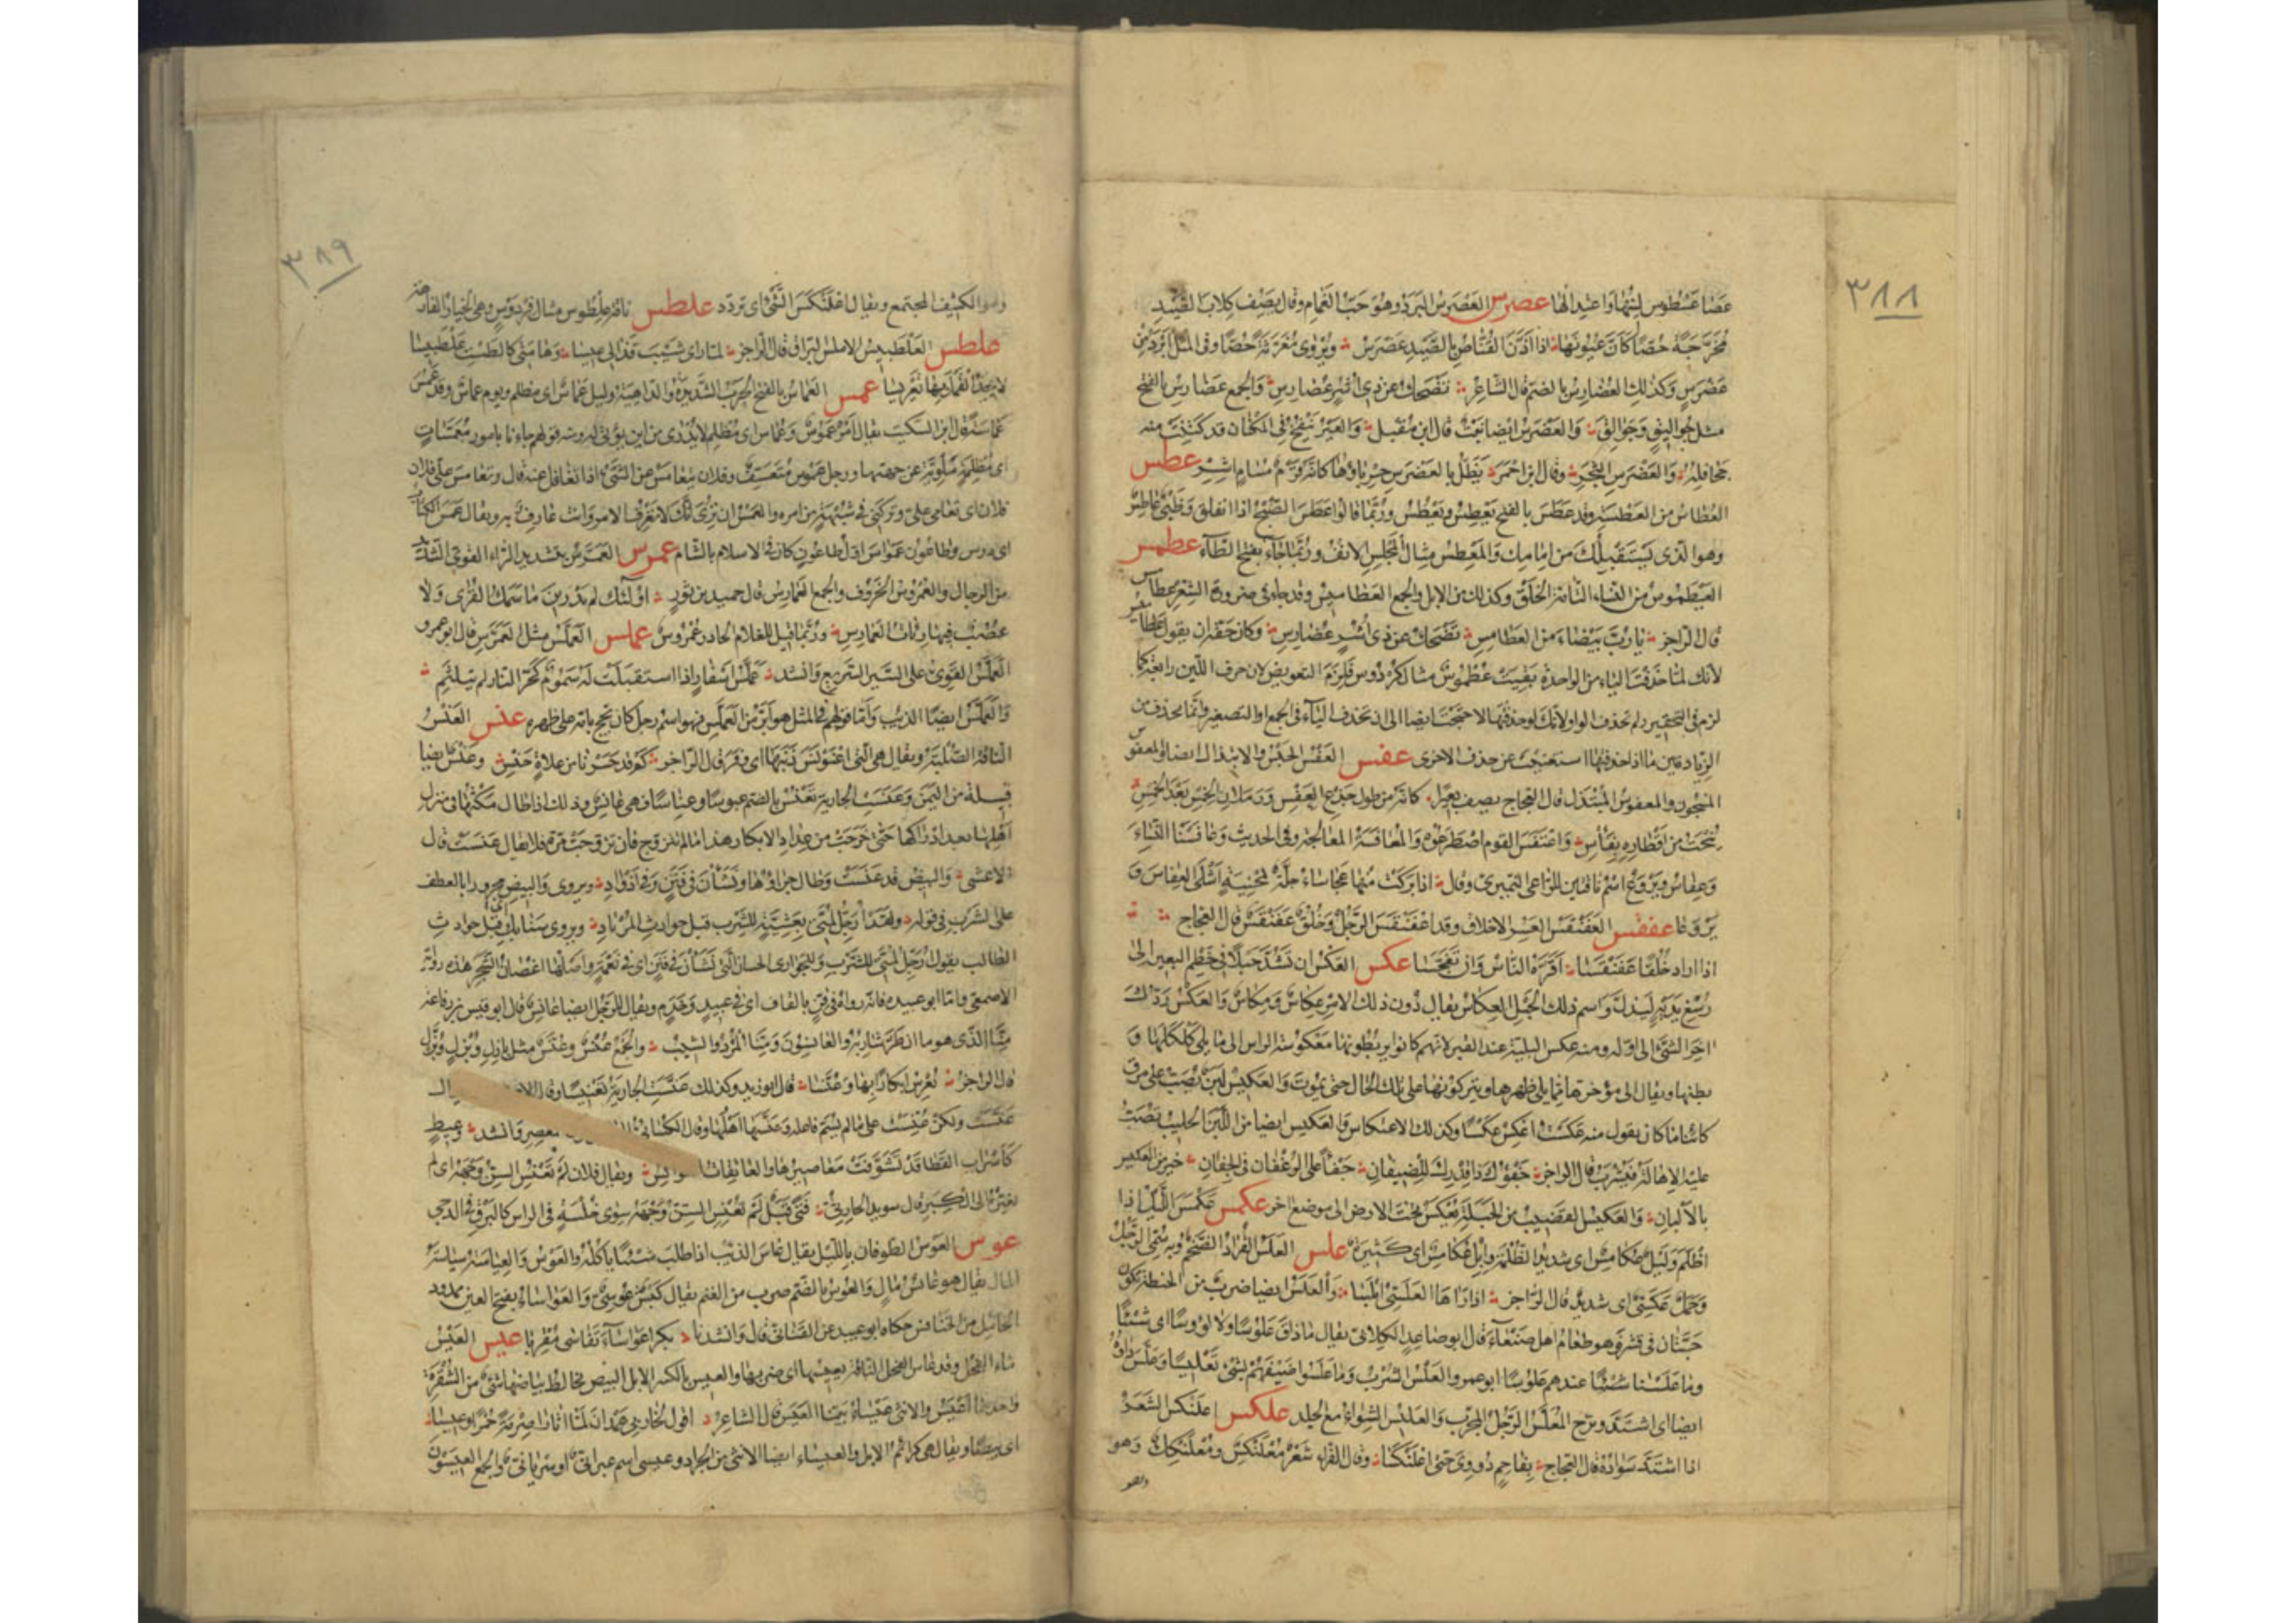 ٣٨٨
عصا عسطوس لينها واعتدالها عضرس العضرس البرد وهو حب الغمام وقال يصف كلاب الصيد
محرجة حصا كأن عيونها اذا اذن القناص بالصيد عضرس ويروى مغرثة حصا وفي المثل ابرد من
عضرس وكذلك العضارس بالضم قال الشاعر تضحك عن ذي اشر عضارس والجمع عضارس بالفتح
مثل جوالق وجوالق والعضرس ايضا نبت قال ابن مقبل والعير ينفخ في المكنان قد كتنت منه
جحافله والعضرس الثجر وقال ابن احمر يظل بالعضرس حرباؤها كانه قرم مسام اشر عطس
العطاس من العطسة وقد عطس بالفتح يعطس ويعطس وربما قالوا عطس الصبح اذا انفلق وظبي عاطس
وهو الذي يستقبلك من امامك والمعطس مثال المجلس الانف وربما جاء بفتح الطاء عطمس
العيطموس من النساء التامة الخلق وكذلك من الابل والجمع العطاميس وقد جاء في ضرورة الشعر عطامس
قال الراجز يا رب بيضاء من العطامس تضحك عن ذي اشر عضارس وكان حقه ان يقول عطاميس
لانك لما حذفت الياء من الواحدة بقيت عطموس مثال كردوس فلزم التعويض لان حرف اللين رابع كما
لزم في التحقير ولم تحذف الواو لانك لو حذفتها لاحتجت ايضا الى ان تحذف الياء في الجمع او التصغير وانما تحذف من
الزيادتين ما اذا حذفتها استغنيت عن حذف الاخرى عفس العفس الحبس والابتذال ايضا والمعفوس
المسجون والمعفوس المبتذل قال العجاج يصف بعيرا كانه من طول جذع العفس ورملان الخمس بعد الخمس
ينحت من اقطاره بفأس واعتفس القوم اصطرعوا والمعافسة المعالجة وفي الحديث وعافسنا النساء
وعفاس وبروع اسم ناقتين للراعي النميري وقال اذا بركت منها عجاساء جلة بمحنية اشلى العفاس و
بروعا عفقس العفنقس العسر الاخلاق وقد اعفنقس الرجل وخلق عفنقس قال العجاج
اذا اراد خلقا عفنقسا اقره الناس وان تفجسا عكس العكس ان تشد حبلا في خطم البعير الى
رسغ يديه ليذل واسم ذلك الحبل العكاس يقال دون ذلك الامر عكاس ومكاس والعكس ردك
اخر الشئ الى اوله ومنه عكس البلية عند القبر لانهم كانوا يربطونها معكوسة الراس الى ما يلي كلكلها و
بطنها ويقال الى مؤخرها مما يلي ظهرها ويتركونها على تلك الحال حتى تموت والعكيس لبن يصب على مرق
كائنا ما كان يقول منه عكست اعكس عكسا وكذلك الاعتكاس والعكيس ايضا من اللبن الحليب تصب
عليه الاهالة فيشرب قال الراجز جفؤك ذا قدرك للضيفان جفأ على الرغفان في الجفان خير من العكيس
بالالبان والعكيس القضيب من الحبلة يعكس تحت الارض الى موضع اخر عكمس عكمس الليل اذا
اظلم وليل عكامس اي شديد الظلمة وابل عكامس اي كثيرة علس العلس القراد الضخم وبه سمي الرجل
وجمل علسي اي شديد قال الراجز اذا رآها العلسي ابلسا والعلس ايضا ضرب من الحنطة تكون
حبتان في قشر وهو طعام اهل صنعاء قال ابو صاعد الكلابي يقال ما ذاق علوسا ولا لؤوسا اي شيئا
وما علسنا شيئا عندهم علوسا ابو عمرو العلس الشرب وما علسوا ضيفهم بشئ تعليسا وعلس داؤه
ايضا اي اشتد وبرح المعلس الرجل المجرب والعليس الشواء مع الجلد علكس اعلنكس الشعر
اذا اشتد سواده قال العجاج بفاحم دووي حتى اعلنكسا وقال الفراء شعر معلنكس ومعلنكك وهو
وهو
٣٨٩
وهو الكثيف المجتمع ويقال اعلنكس الشئ اي تردد علطس ناقة علطوس مثال فردوس وهي الخيار الفارهة
علطس العلطبيس الاملس البراق قال الراجز لما راى شيب قذالي عيسا وهامتي كالطست علطبيسا
لا يجد القمل بها تعريسا عمس العماس بالفتح الحرب الشديدة والداهية وليل عماس اي مظلم ويوم عماس وقد عمس
عماسة قال ابن السكيت يقال امر عموس وعماس اي مظلم لا يدرى من اين يؤتى له ومنه قولهم جاءنا بامور معمسات
اي مظلمة ملوية عن جهتها ورجل عموس متعسف وفلان يتعامس عن الشئ اذا تغافل عنه قال وتعامس علي فلان
فلان اي تعامى علي وتركني في شبهة من امره والعمس ان تري انك لا تعرف الامر وانت عارف به ويقال عمس الكتاب
اي درس وطاعون عمواس اول طاعون كان في الاسلام بالشام عمرس العمرس بتشديد الراء القوي الشديد
من الرجال والعمروس الخروف والجمع العمارس قال حميد بن ثور اولئك لم يدرين ما سمك القرى ولا
عصب فيها رئات العمارس وربما قيل للغلام الحادر عمروس عملس العملس مثل العمرس قال ابو عمرو
العملس القوي على السير السريع وانشد عملس اسفار اذا استقبلت له سموم كحر النار لم يتلثم
والعملس ايضا الذئب واما قولهم في المثل هو ابر من العملس فهو اسم رجل كان يحج بامه على ظهره عنس العنس
الناقة الصلبة ويقال هي التي اعنونس ذنبها اي وفر قال الراجز كم قد حسرنا من علاة عنس وعنس ايضا
قبيلة من اليمن وعنست الجارية تعنس بالضم عنوسا وعناسا فهي عانس وذلك اذا طال مكثها في منزل
اهلها بعد ادراكها حتى خرجت من عداد الابكار هذا ما لم تتزوج فان تزوجت مرة فلا يقال عنست قال
الاعشى والبيض قد عنست وطال جراؤها ونشأن في فنن وفي اذواد ويروى والبيض مجرورا بالعطف
على الشرب في قوله ولقد ارجل لمتي بعشية للشرب قبل حوادث المرتاد ويروى سنابك اي قبل حوادث
الطالب يقول ارجل لمتي للشرب وللجواري الحسان اللتي نشأن في فنن اي في نعمة واصلها اغصان الشجر هذه رواية
الاصمعي واما ابو عبيدة فانه رواه في قن بالقاف اي في عبيد وخدم ويقال للرجل ايضا عانس قال ابو قيس بن رفاعة
منا الذي هو ما ان طر شاربه والعانسون ومنا المرد والشيب والجمع عنس وعنس مثل بازل وبزل وبزل
قال الراجز يعرس ابكارا بها وعنسا قال ابو زيد وكذلك عنست الجارية تعنيسا وقال
عنست ولكن عنست على ما لم يسم فاعله وعنسها اهلها وقال الكسائي معصر وانشد وعيط
كأسراب القطا قد تشوفت معاصيرها والعاتقات ويقال فلان لم تعنس السن وجهه اي لم
تغيره الى الكبر قال سويد الحارثي فتى قبل لم تعنس السن وجهه سوى خلسة في الراس كالبرق في الدجى
عوس العوس الطوفان بالليل يقال عاس الذئب اذا طلب شيئا ياكله والعوس والعياسة سياسة
المال يقال هو عائس مال والعوس بالضم ضرب من الغنم يقال كبش عوسي والعواساء بفتح العين ممدود
الحامل من الخنافس حكاه ابو عبيد عن القناني قال وانشدنا بكرا عواساء تفاسى مقربا عيس العيس
ماء الفحل وقد عاس الفحل الناقة يعيسها اي ضربها والعيس بالكسر الابل البيض يخالط بياضها شئ من الشقرة
واحدها اعيس والانثى عيساء بينا العيس قال الشاعر اقول لخاربي همدان لما اثارا صرمة حمرا وعيسا
اي بيضا ويقال هي كرائم الابل والعيساء ايضا الانثى من الجراد وعيسى اسم عبراني او سرياني والجمع العيسون